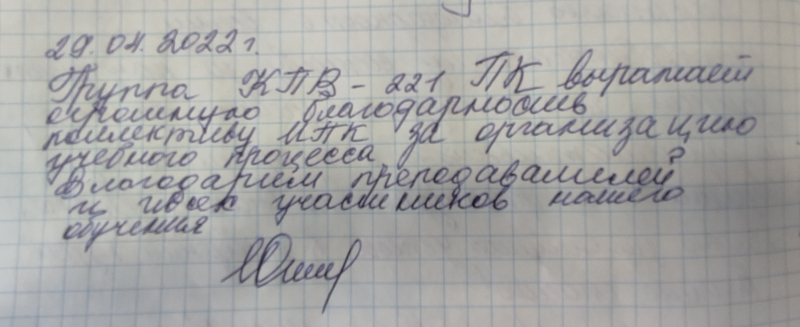 29.04.2022 г.
Группа КПВ - 221 ПК выражает
огромную благодарность
коллективу ИПК за организацию
учебного процесса
Благодарим преподавателей
и всех участников нашего
обучения